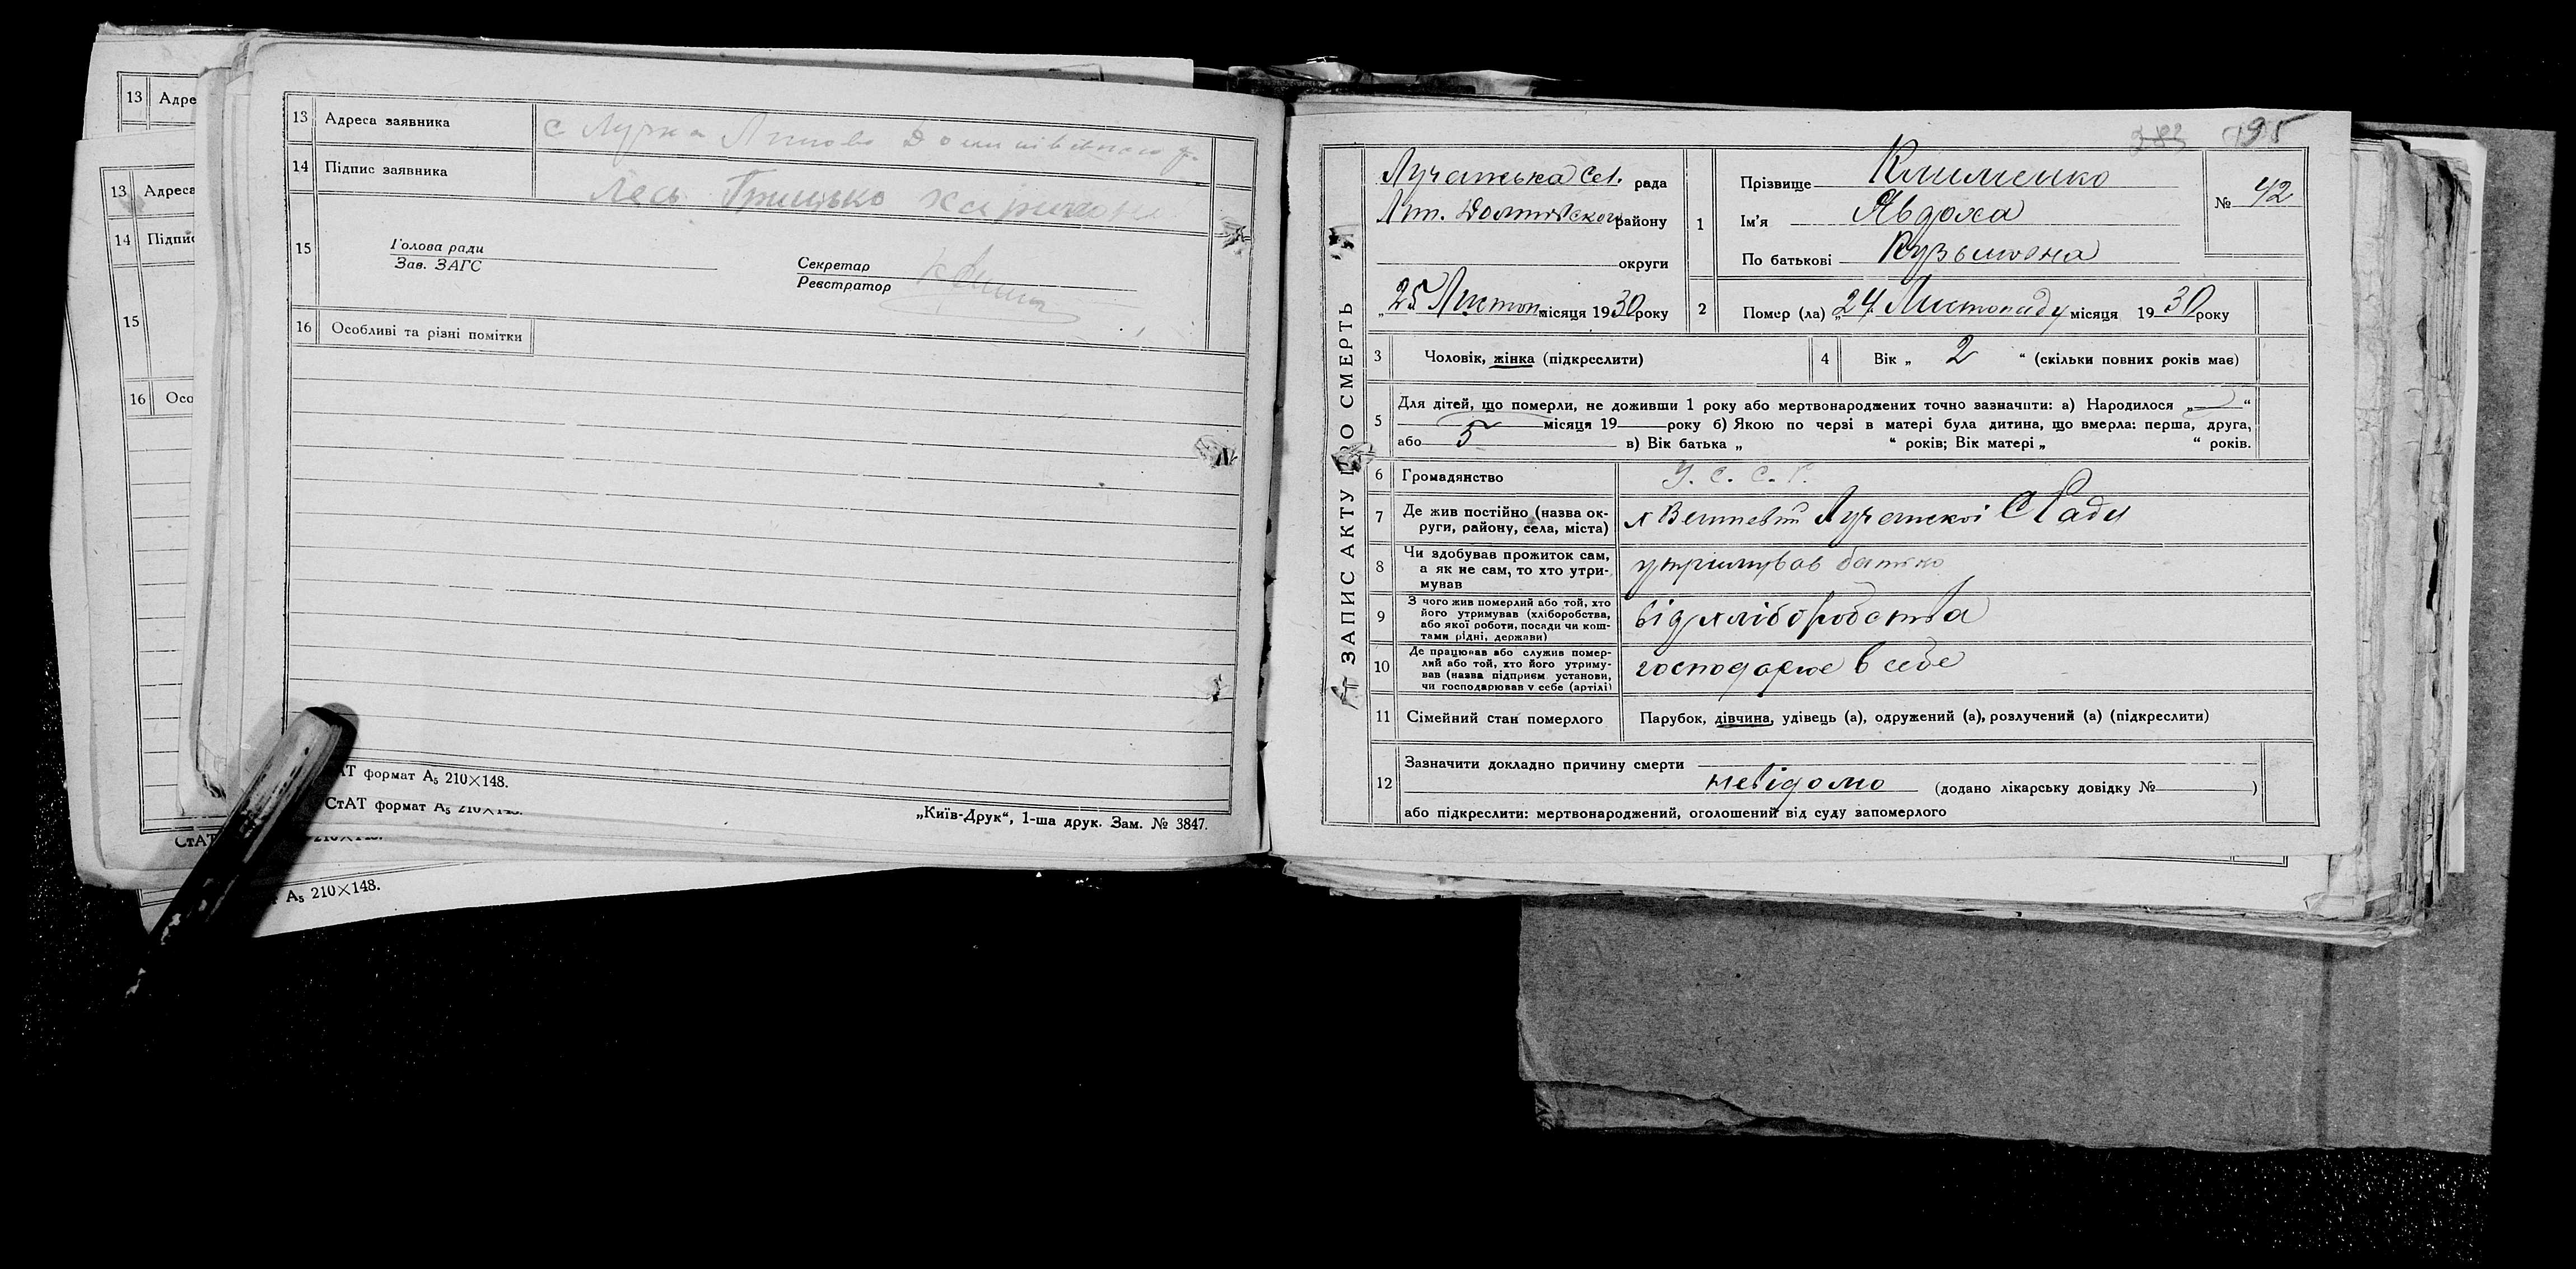 13 Адре
13 Адреса
14 Підпис
15
16 Осо
13 Адреса заявника с Лучка Липово Долинського р.
14 Підпис заявника Лесь Грицько
15 Голова ради
Зав. ЗАГС
Секретар
Реєстратор
16 Особливі та різні помітки
АТ формат А₅ 210×148.
СтАТ формат А₅ 210×148.
„Київ-Друк“, 1-ша друк. Зам. № 3847.
СтАТ 210×148.
А₅ 210×148.
195
ЗАПИС АКТУ ПРО СМЕРТЬ
рада
Лип. району
округи
„25 Листоп. місяця 1930 року
1 Прізвище Клименко
Ім'я Явдоха
По батькові Кузьмовна
№ 42
2 Помер (ла) „24 Листопаду місяця 1930 року
3 Чоловік, жінка (підкреслити)
4 Вік „ 2 “ (скільки повних років має)
5 Для дітей, що померли, не доживши 1 року або мертвонароджених точно зазначити: а) Народилося „ “
місяця 19 року б) Якою по черзі в матері була дитина, що вмерла: перша, друга,
або 5 в) Вік батька „ “ років; Вік матері „ “ років.
6 Громадянство У. С. С. Р.
7 Де жив постійно (назва ок-
руги, району, села, міста) х Лучанської С Ради
8 Чи здобував прожиток сам,
а як не сам, то хто утри-
мував утримував батько
9 З чого жив померлий або той, хто
його утримував (хліборобства,
або якої роботи, посади чи кош-
тами рідні, держави) від хліборобства
10 Де працював або служив помер-
лий або той, хто його утриму-
вав (назва підприєм. установи,
чи господарював у себе (артілі) господарює в себе
11 Сімейний стан померлого Парубок, дівчина, удівець (а), одружений (а), розлучений (а) (підкреслити)
12 Зазначити докладно причину смерти
невідомо (додано лікарську довідку № )
або підкреслити: мертвонароджений, оголошений від суду запомерлого